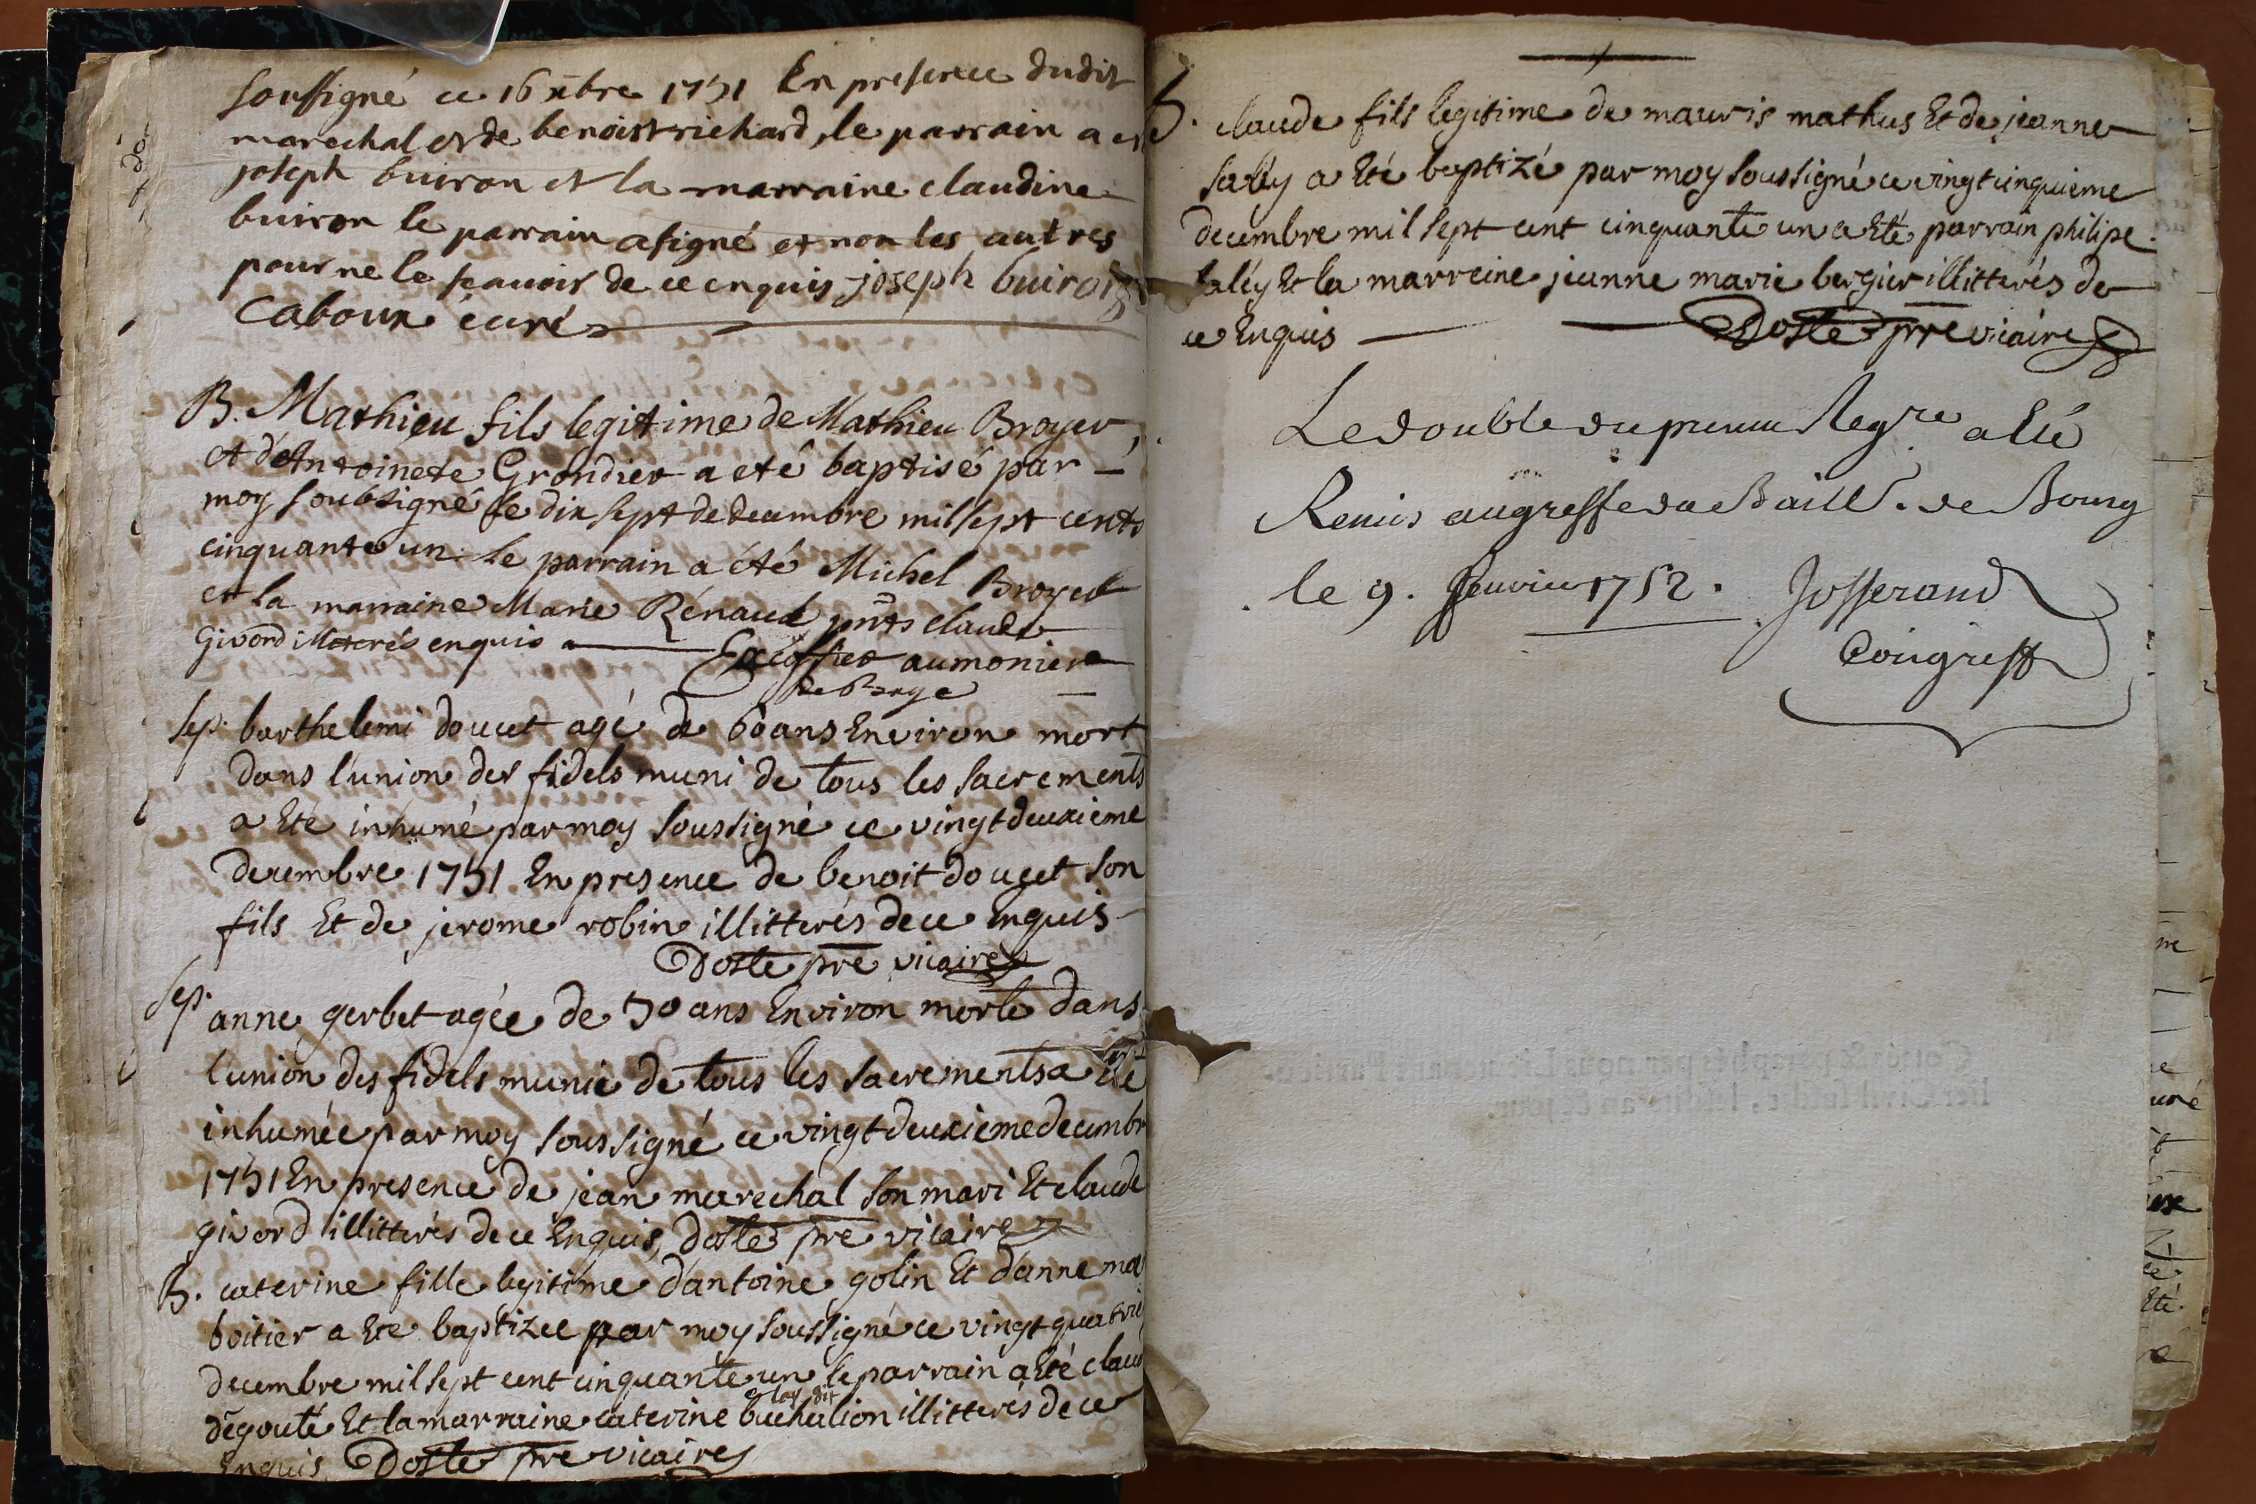 soussigné ce 16 xbre 1751 En presence dudit
marechal et de benoist richard, le parrain a eté
joseph buiron et la marraine claudine
buiron le parrain a signé et non les autres
pour ne le scavoir de ce enquis joseph buiron
Caboux curé
B. Mathieu fils legitime de Mathieu Broyer,
et d'Antoinete Grondier a eté baptisé par
moy soubsigné le dix sept de decembre mil sept cents
cinquante un le parrain a été Michel Broyer
et la marraine Marie Rénaud pnts claude
Givord illiterés enquis
Excoffier aumonier
sep. barthelemi doucet agé de 60 ans Environ mort
dans l'union des fidels muni de tous les sacrements
a Eté inhumé par moy soussigné ce vingt deuxieme
decembre 1751 En presence de benoit doucet son
fils Et de jerome robin illitterés de ce Enquis
Doste pre vicaire
sep. anne gerbet agée de 50 ans Environ morte dans
l'union des fidels munie de tous les sacrements a Eté
inhumée par moy soussigné ce vingt deuxieme decembr
1751 En presence de jean marechal son mari Et claude
givord illitterés de ce Enquis, Doste pre vicaire
B. caterine fille legitime d'antoine golin Et d'anne ma
boitier a Eté baptizee par moy soussigné ce vingt quatrie
decembre mil sept cent cinquante un le parrain a Eté claud
degouté Et la marraine caterine buchalion illitterés de ce
Enquis Doste pre vicaire
B. claude fils legitime de mauris mathus Et de jeanne
saley a Eté baptizé par moy soussigné ce vingt cinquieme
decembre mil sept cent cinquante un a Eté parrain philipe
saley Et la marreine jeanne marie bergier illitterés de
ce Enquis Doste pre vicaire
Le double du present Regre a Eté
Remis au greffe du Baill. de Bourg
le 9. Janvier 1752. Josserand
Comgreff